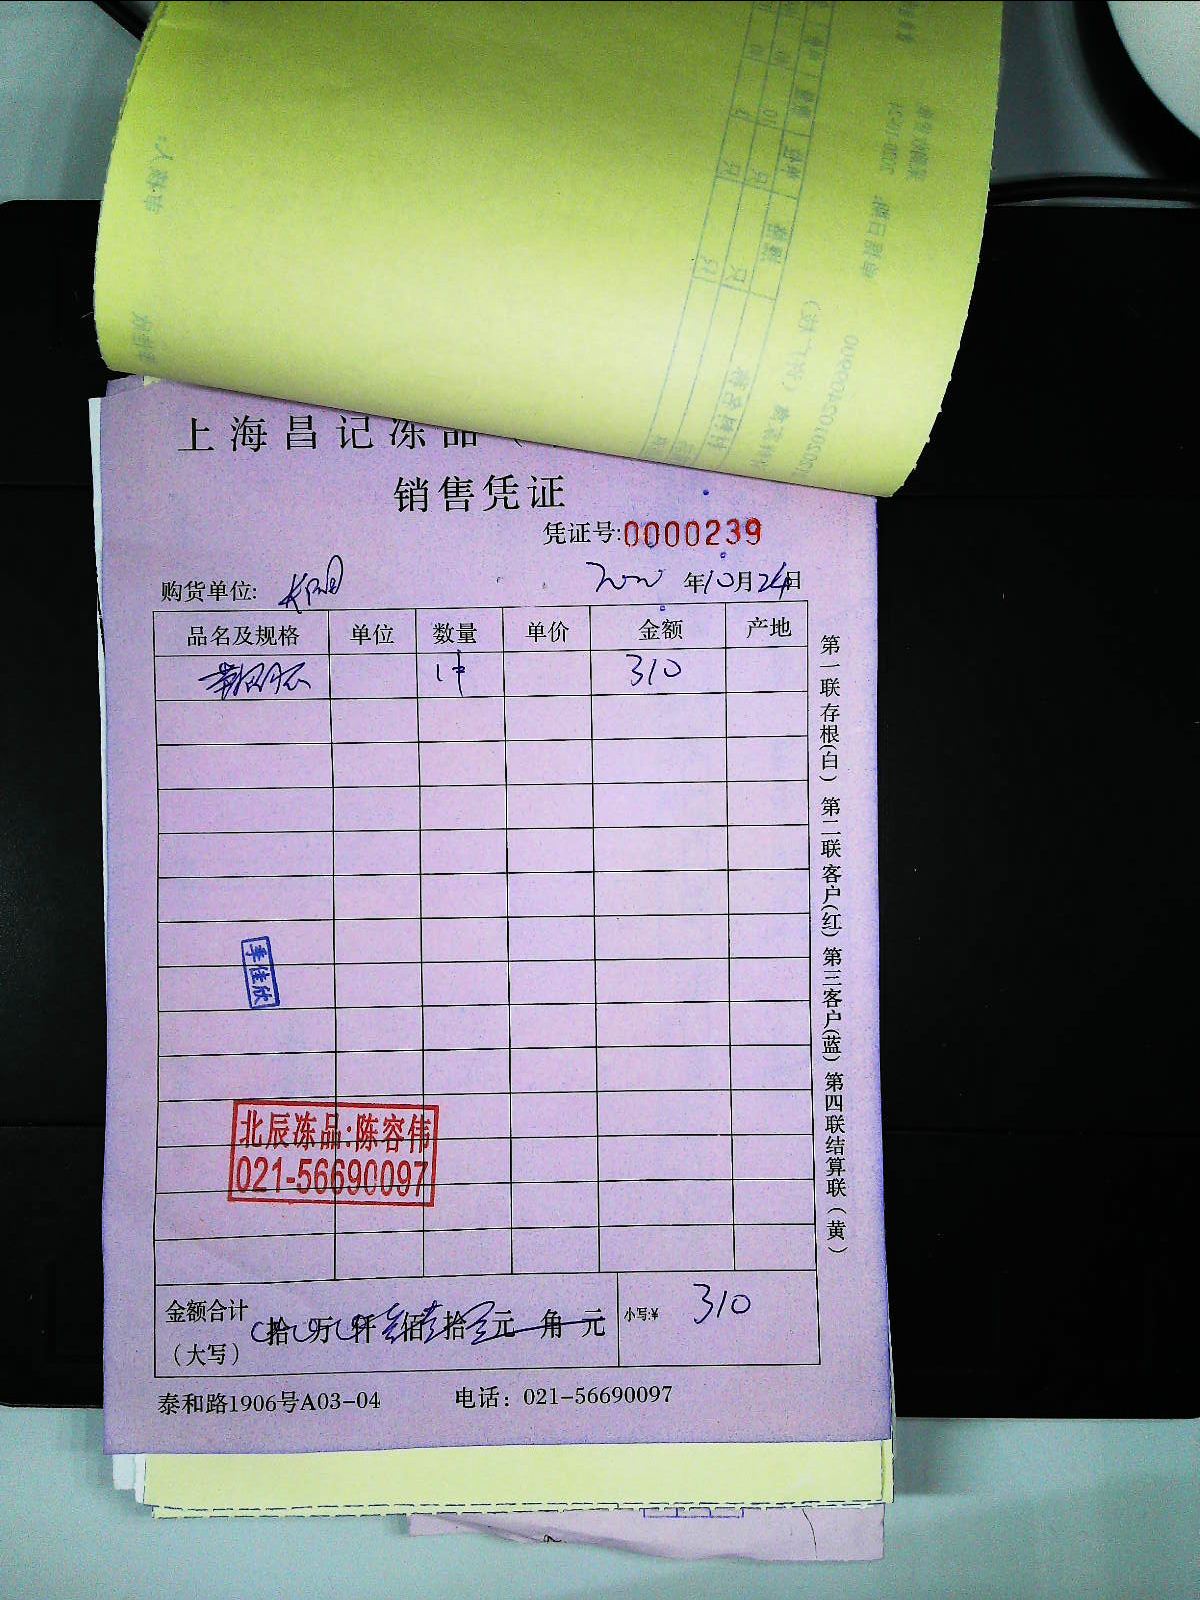 上海昌记冻品
销售凭证
凭证号:0000239
购货单位:
年10月24日
品名及规格 单位 数量 单价 金额 产地
1件 310
李佳欣
北辰冻品:陈容伟
021-56690097
金额合计
(大写)
拾 万 仟 叁佰壹拾 元 角 元
小写:¥ 310
泰和路1906号A03-04 电话: 021-56690097
第一联存根(白) 第二联客户(红) 第三客户(蓝) 第四联结算联(黄)